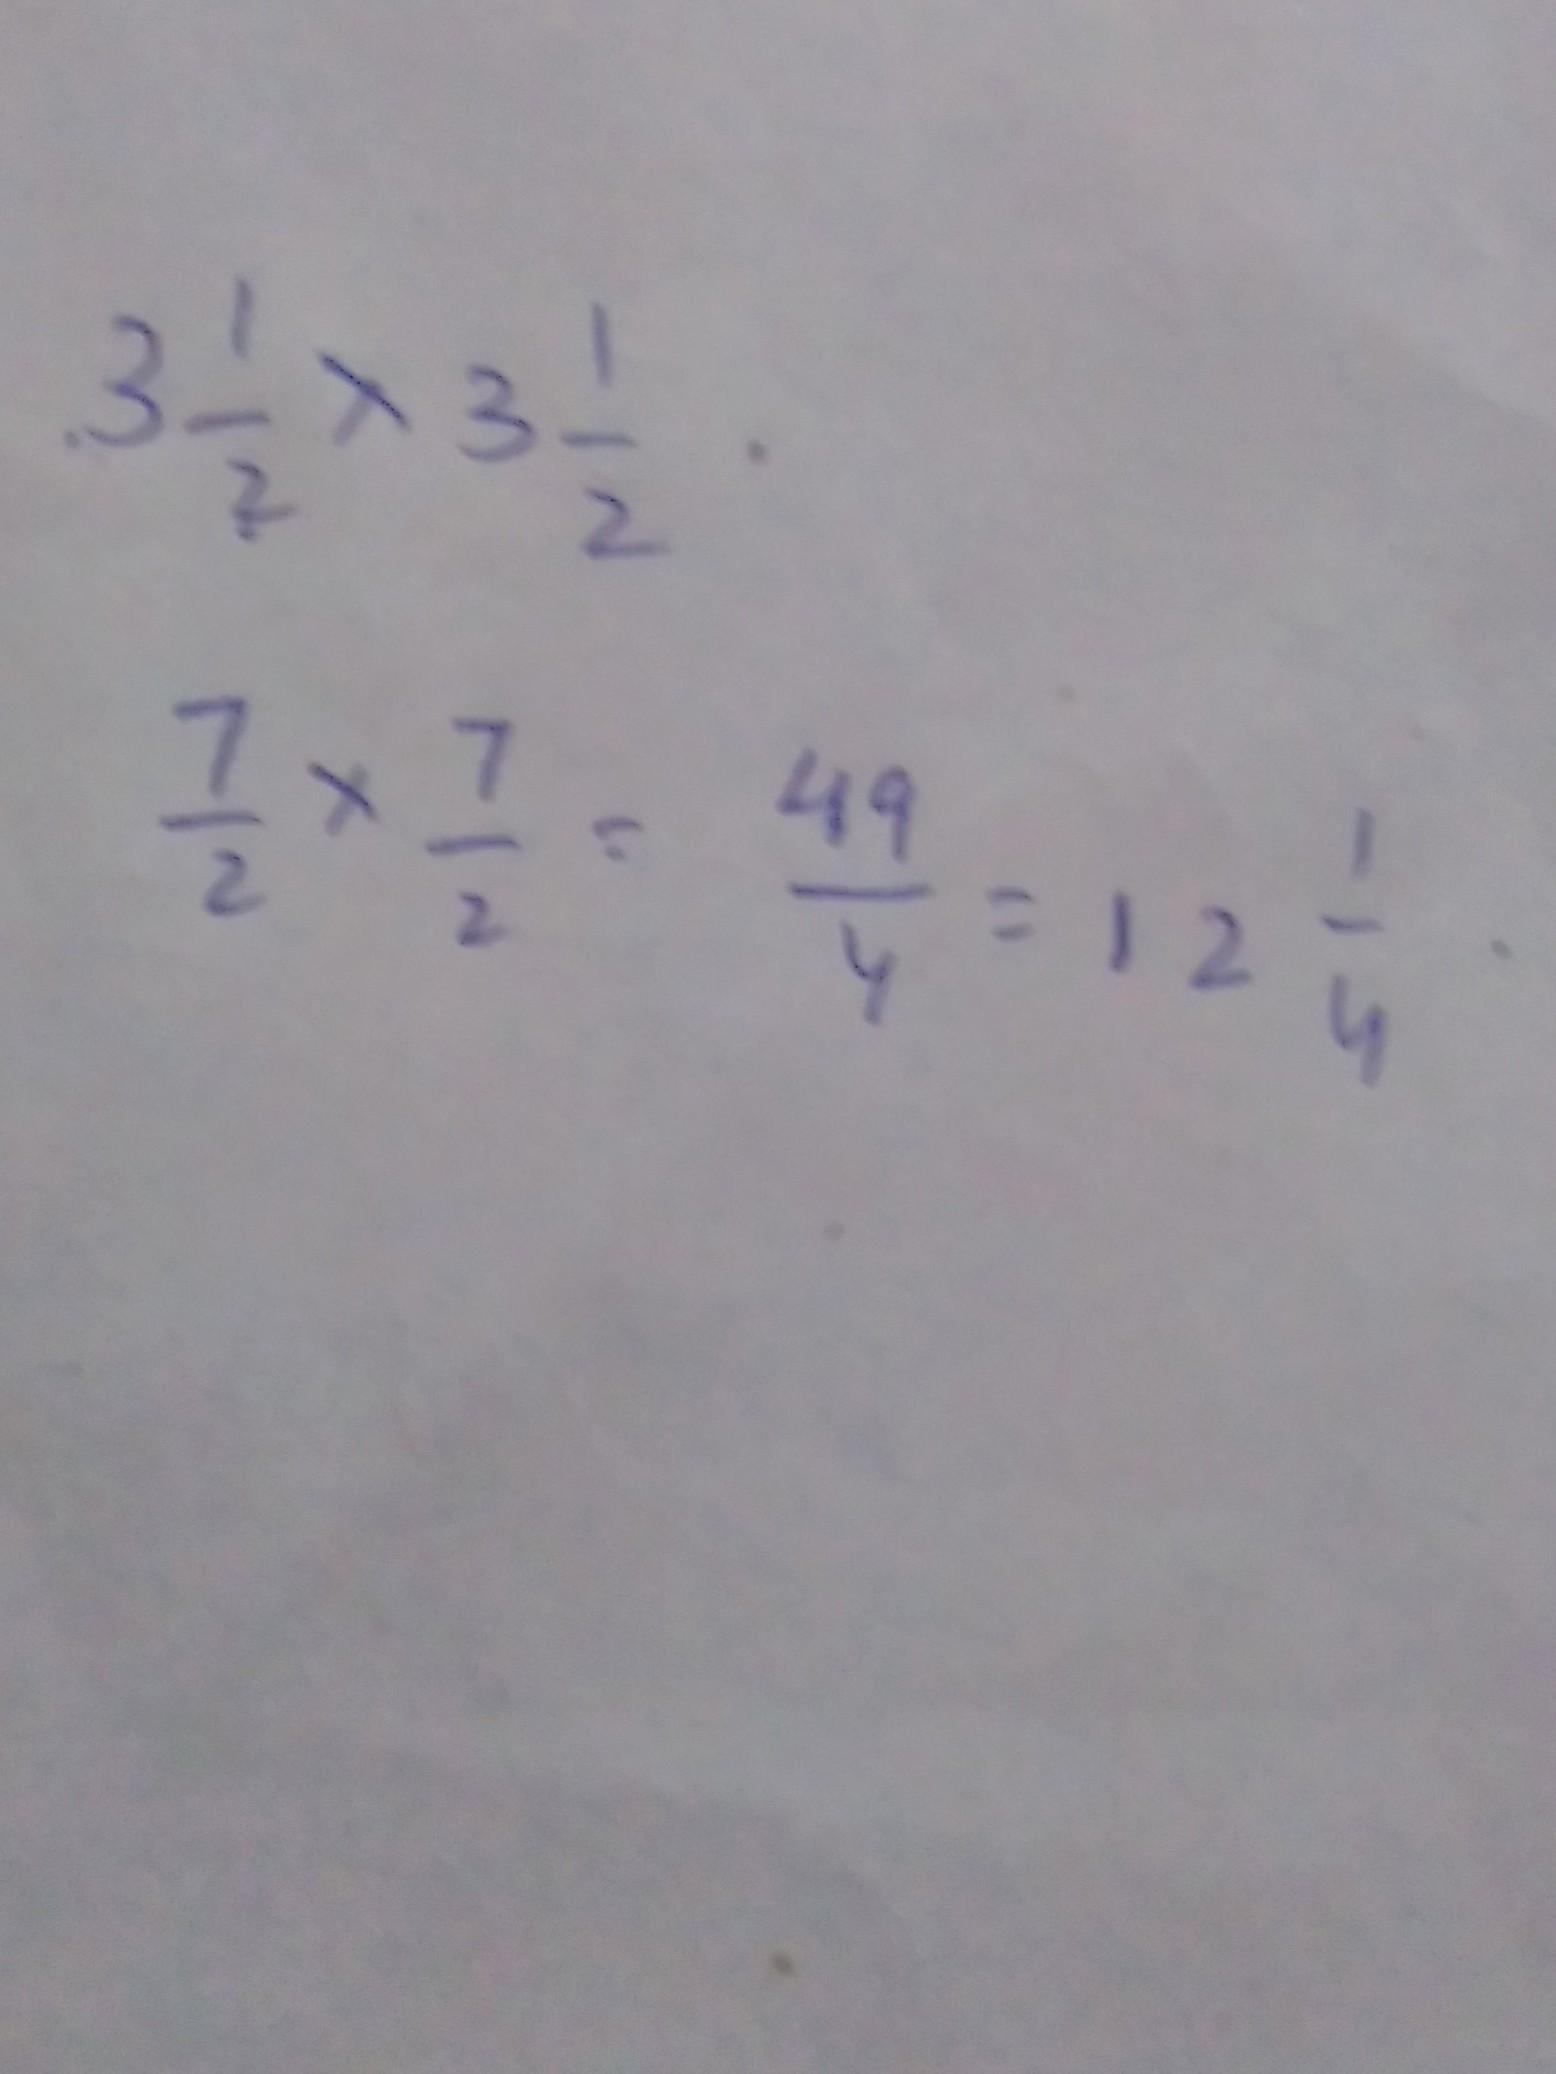 3 1/2 × 3 1/2
7/2 × 7/2 = 49/4 = 12 1/4